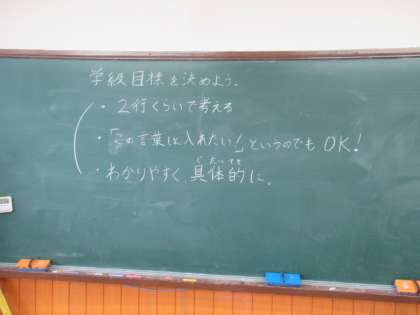 学級目標を決めよう。
・2行くらいで考える
・「この言葉は入れたい!」というのでもOK!
・わかりやすく、具体的に。